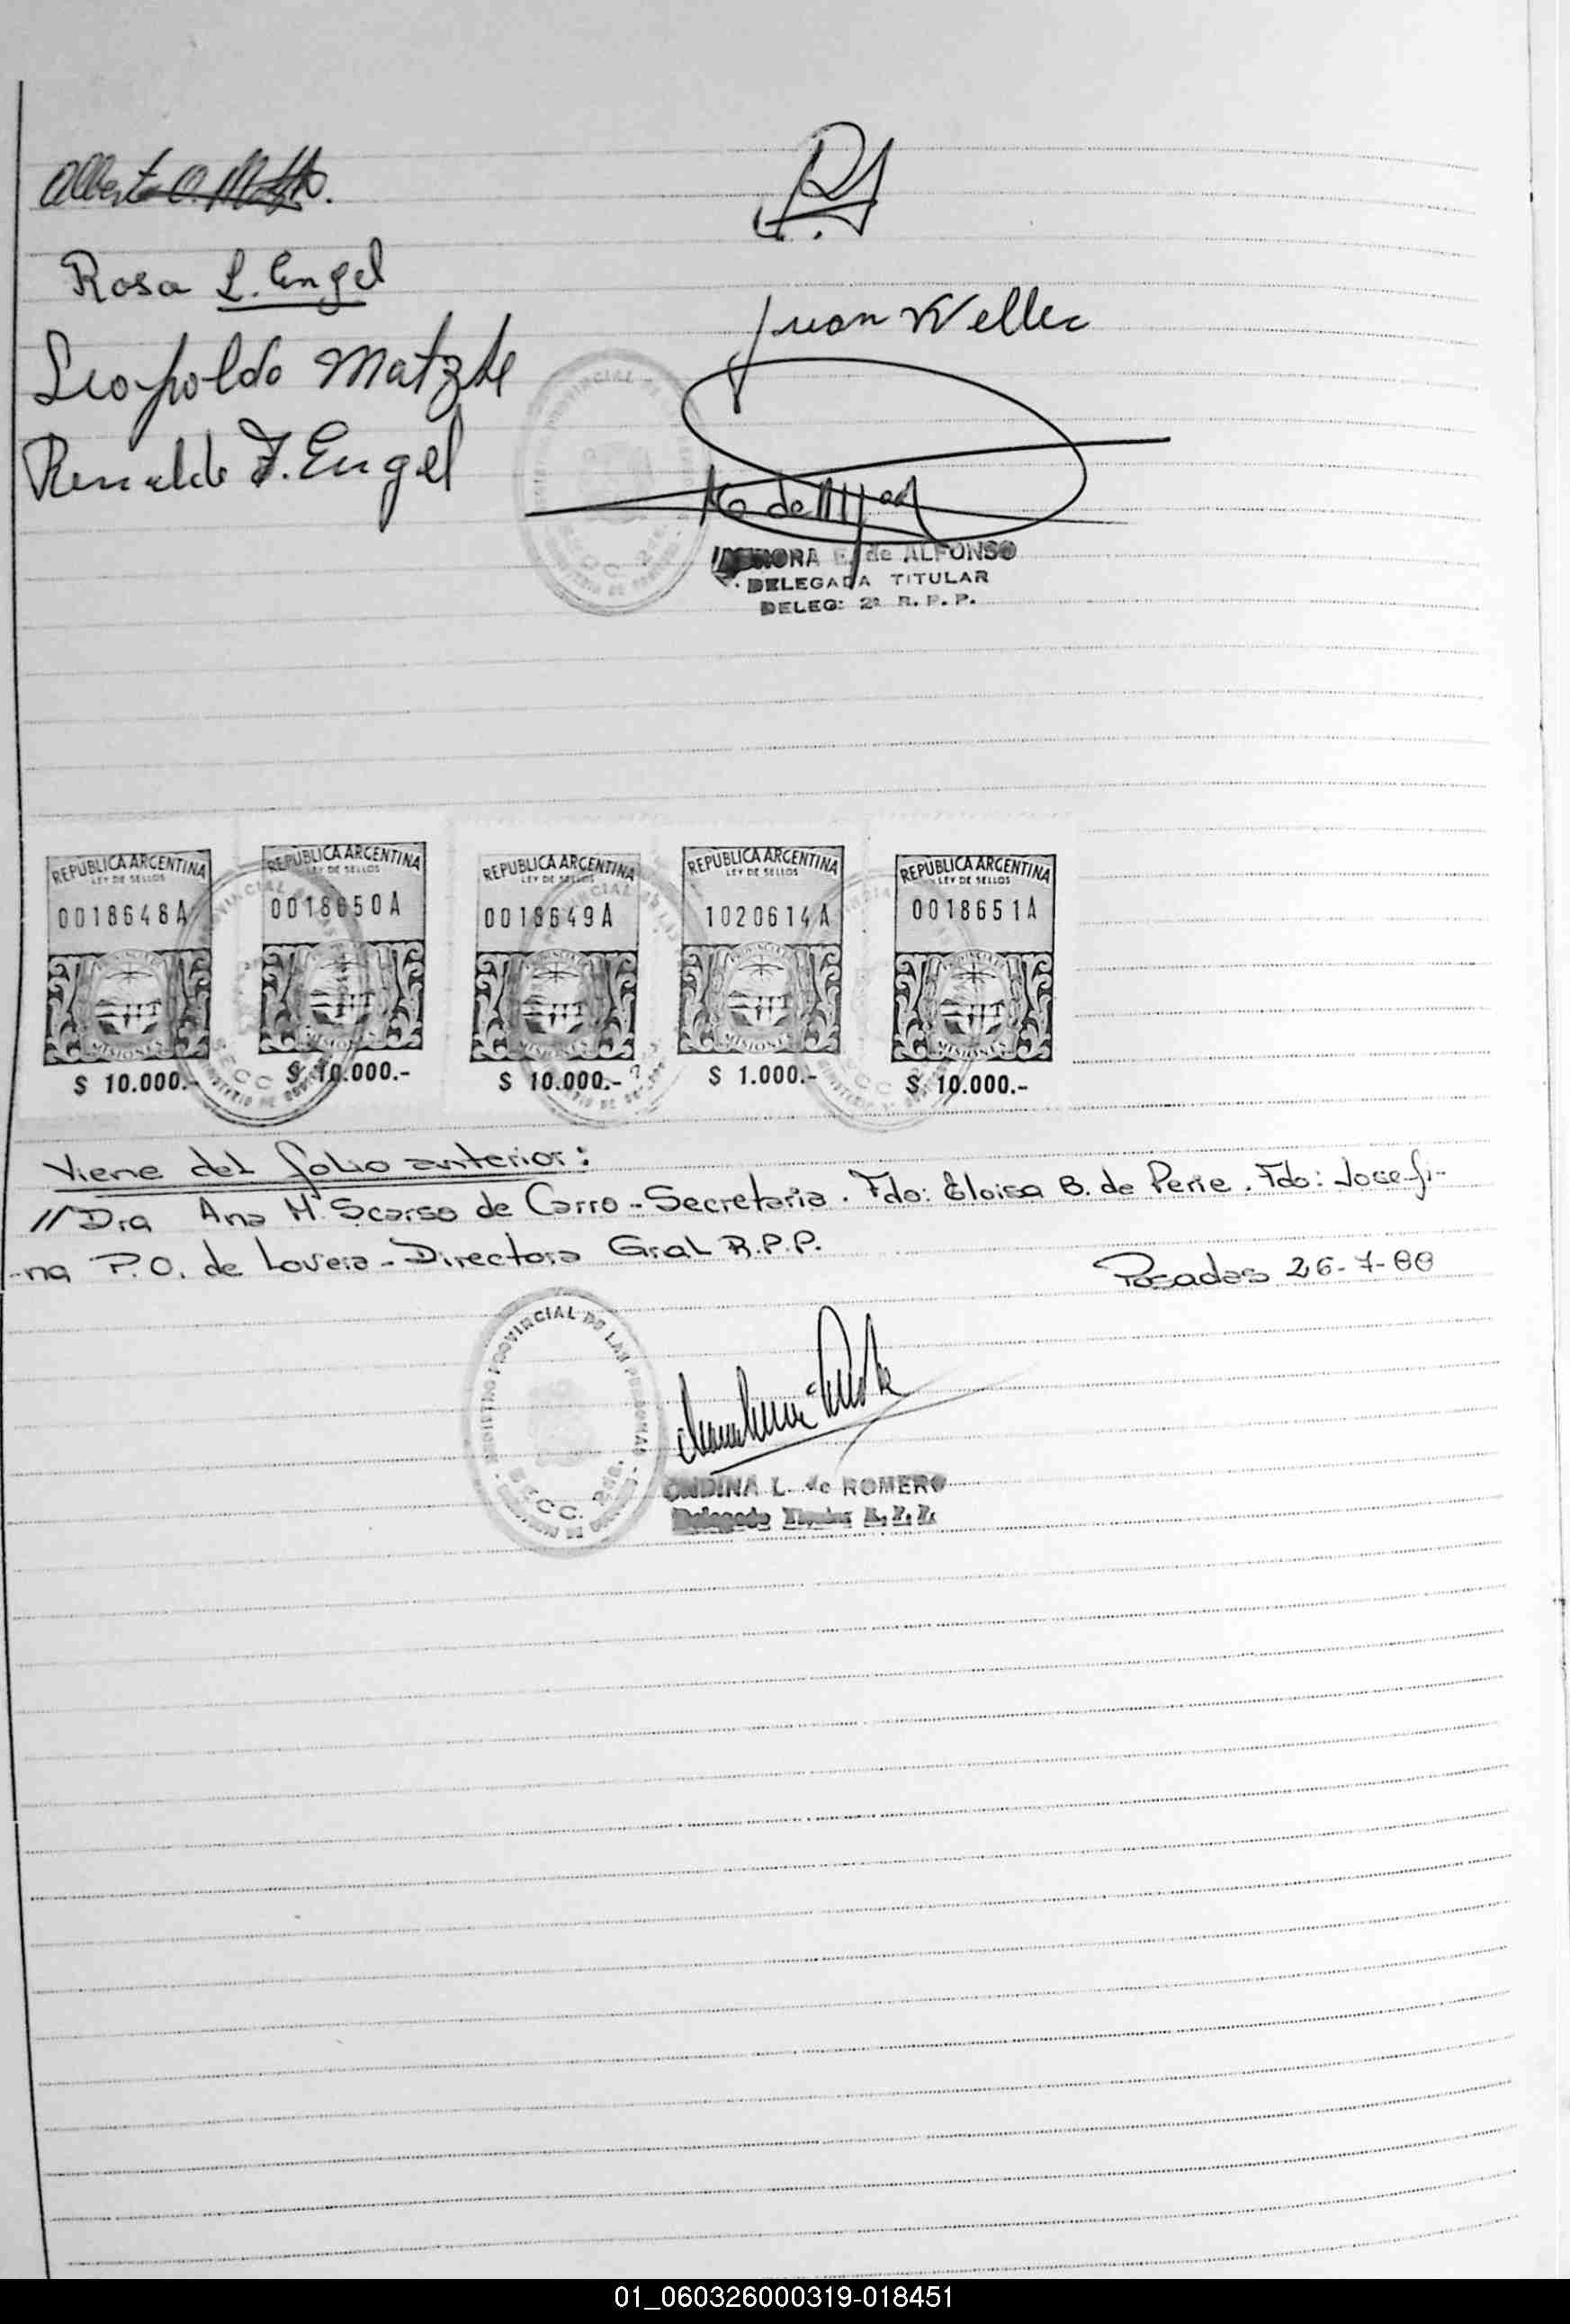 Rosa L. Engel
Juan Weller
Leopoldo Matzke
Renaldo F. Engel
de ALFONSO
DELEGADA TITULAR
DELEG: 2ª R. P. P.
REPUBLICA ARGENTINA
LEY DE SELLOS
0018648A
MISIONES
$ 10.000.-
REPUBLICA ARGENTINA
LEY DE SELLOS
0018650A
MISIONES
$ 10.000.-
REPUBLICA ARGENTINA
LEY DE SELLOS
0018649A
MISIONES
$ 10.000.-
REPUBLICA ARGENTINA
LEY DE SELLOS
1020614A
MISIONES
$ 1.000.-
REPUBLICA ARGENTINA
LEY DE SELLOS
0018651A
MISIONES
$ 10.000.-
Viene del folio anterior:
//Dra Ana M. Scarso de Carro - Secretaria. Fdo: Eloisa B. de Perie. Fdo: Josefi-
-na P.O. de Lovera - Directora Gral R.P.P.
Posadas 26-7-88
REGISTRO PROVINCIAL DE LAS PERSONAS
ONDINA L. de ROMERO
01_060326000319-018451